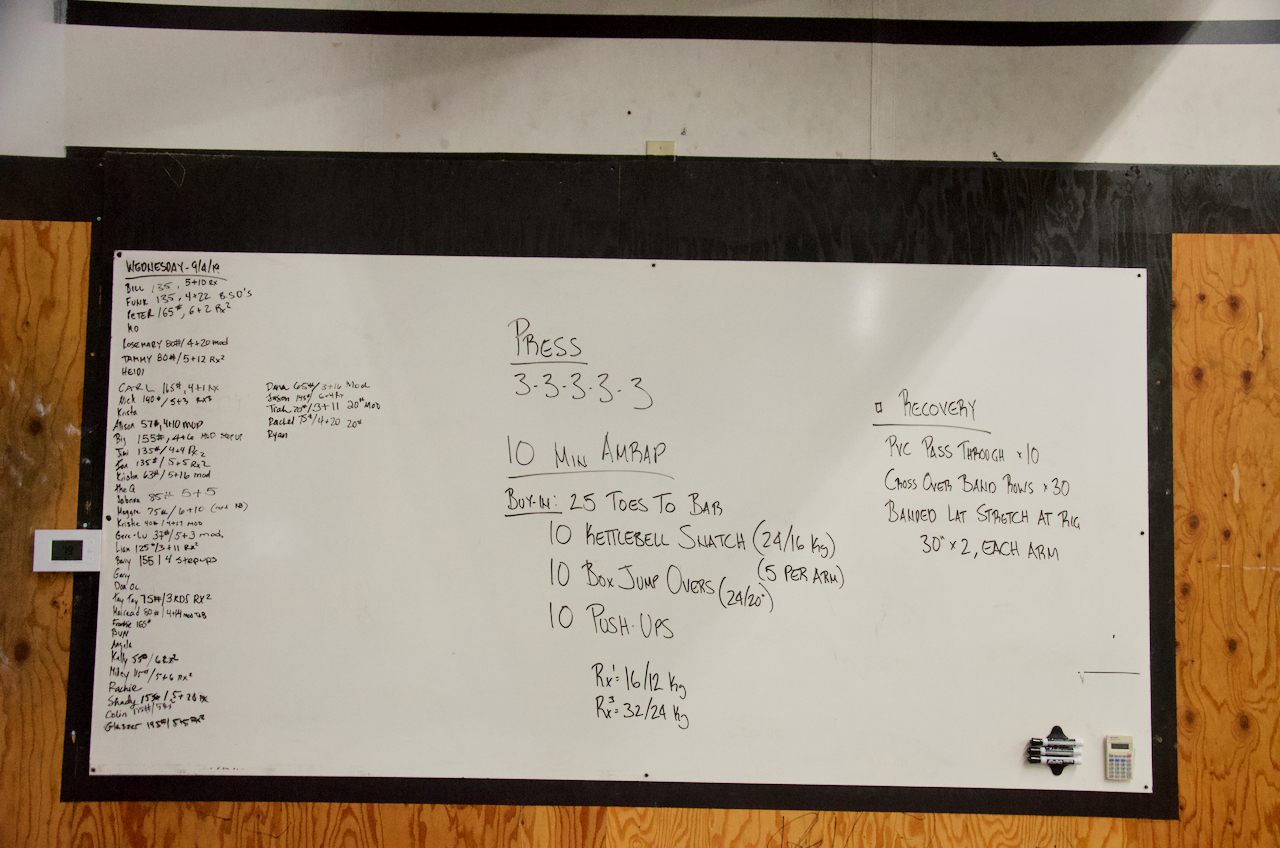 WEDNESDAY - 9/4/19
BILL 135, 5+10 RX
FUNK 135, 4+22 B.S.O'S
PETER 165#, 6+2 RX²
MO
ROSEMARY 80#/ 4+20 mod
TAMMY 80#/5+12 RX²
HEIDI
CARL 165#, 4+1 RX
Nick 140#/5+3 RX³
Krista
Alison 57#, 4+10 MOD
Big 155#, 4+6 MOD STEP UP
135#/ 4+9
135#/ 5+5 RX2
Krista 63#/ 5+16 mod
the G
85# 5+5
Maggie 75#/ 6+10
Kristie 40#/ 4+17 MOD
Gere-Lu 37#/5+3 mod.
Lisa 125#/3+11 RX²
Barry 155 / 4 Stepups
Gary
Dan OL
Tay Tay 75#/3RDS RX²
80# / 4+14 mod T2B
Frankie 165#
BUN
Angela
Kelly 55#/6 RX²
Miley /5+6 RX²
Rachie
Shady 155# / 5+20 RX
Colin
Glasner 195#/5+5 RX²
Dana 65#/ 3+16 Mod
Jason 145#/ 6+4 RX
Trish 70#/3+11 20# MOD
Rachel 75#/4+20 20#
Ryan
PRESS
3-3-3-3-3
10 MIN AMRAP
BUY-IN: 25 TOES TO BAR
10 KETTLEBELL SNATCH (24/16 Kg)
(5 PER ARM)
10 BOX JUMP OVERS (24/20")
10 PUSH-UPS
RX¹= 16/12 Kg
RX³= 32/24 Kg
RECOVERY
PVC PASS THROUGH × 10
CROSS OVER BAND ROWS × 30
BANDED LAT STRETCH AT RIG
30" × 2, EACH ARM